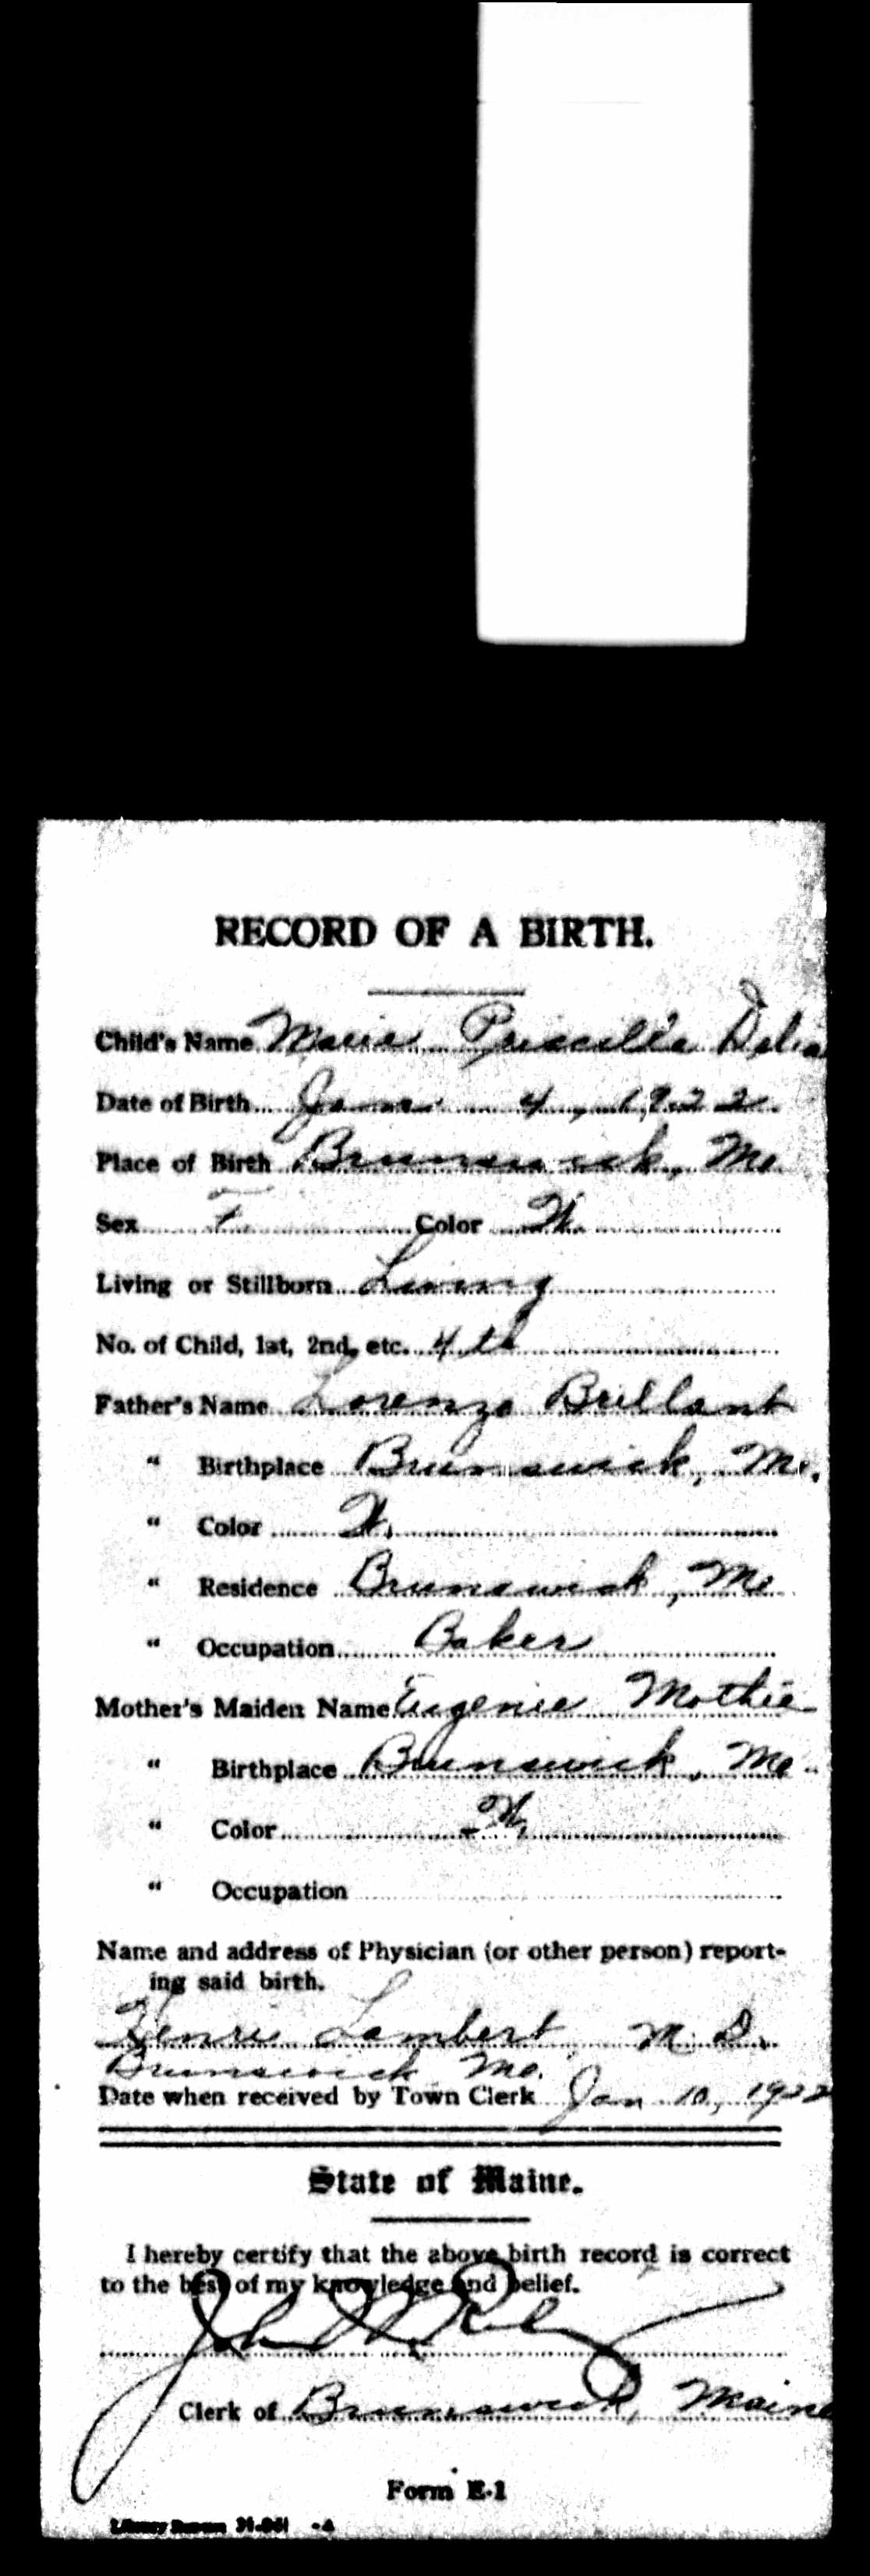 RECORD OF A BIRTH.
Child's Name Marie Priscilla Delia
Date of Birth Jan. 4, 1922
Place of Birth Brunswick, Me.
Sex F Color W.
Living or Stillborn Living
No. of Child, 1st, 2nd, etc. 4th
Father's Name Lorenzo Brillant
" Birthplace Brunswick, Me.
" Color W.
" Residence Brunswick, Me
" Occupation Baker
Mother's Maiden Name Eugenie Mothie
" Birthplace Brunswick, Me.
" Color W.
" Occupation
Name and address of Physician (or other person) report-
ing said birth.
Henrie Lambert M. D.
Brunswick Me.
Date when received by Town Clerk Jan 10, 1922
State of Maine.
I hereby certify that the above birth record is correct
to the best of my knowledge and belief.
John W. Riley
Clerk of Brunswick, Maine
Form E-1
Library Bureau